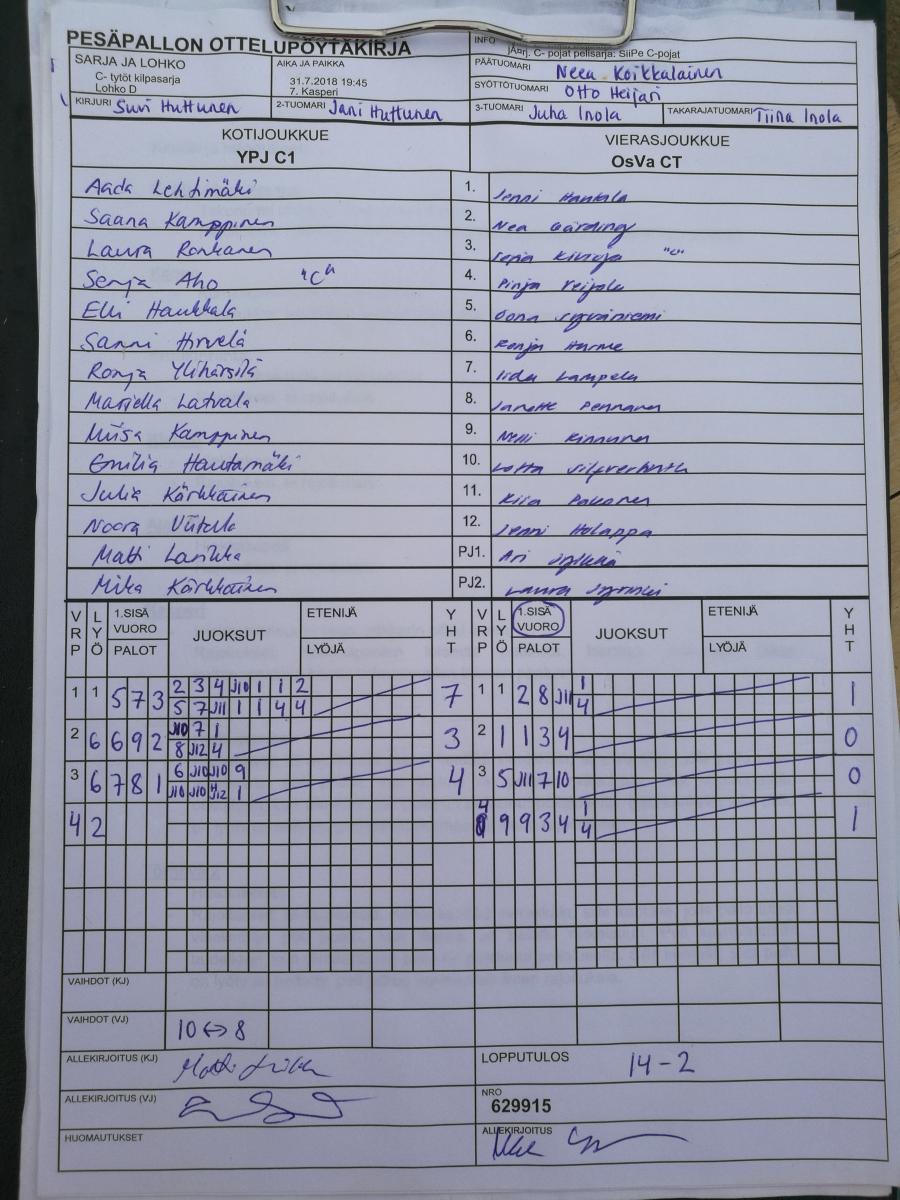 PESÄPALLON OTTELUPÖYTÄKIRJA
INFO
JÄrj. C- pojat pelisarja: SiiPe C-pojat
SARJA JA LOHKO
C- tytöt kilpasarja
Lohko D
AIKA JA PAIKKA
31.7.2018 19:45
7. Kasperi
PÄÄTUOMARI Neea Koikkalainen
SYÖTTÖTUOMARI Otto Heijari
KIRJURI Suvi Huttunen
2-TUOMARI Jani Huttunen
3-TUOMARI Juha Inola
TAKARAJATUOMARI Tiina Inola
KOTIJOUKKUE
YPJ C1
VIERASJOUKKUE
OsVa CT
Aada Lehtimäki 1. Jenni Hankala
Saana Kamppinen 2. Nea Gärding
Laura Ronkanen 3. "C"
Senja Aho "C" 4. Pinja Veijola
Elli Haukkala 5. Oona Syväniemi
Sanni Hirvelä 6. Ronja Harme
Ronja Ylihärsilä 7. Iida Lampela
Mariella Latvala 8. Janette Pennanen
Miisa Kamppinen 9. Nelli Kinnunen
Emilia Hautamäki 10. Lotta
Julia Kärkkäinen 11. Kiia Pakonen
Noora Viitala 12. Jenni Holappa
Matti Larikka PJ1. Ari
Mika Kärkkäinen PJ2. Laura
VRP LYÖ 1.SISÄ VUORO PALOT JUOKSUT ETENIJÄ LYÖJÄ YHT VRP LYÖ 1.SISÄ VUORO PALOT JUOKSUT ETENIJÄ LYÖJÄ YHT
1 1 5 7 3 2 3 4 J10 1 1 2 7 1 1 2 8 J11 1 1
5 7 J11 1 1 4 4 4
2 6 6 9 2 J10 7 1 3 2 1 1 3 4 0
8 J12 4
3 6 7 8 1 6 J10 J10 9 4 3 5 J11 7 10 0
J10 J10 J12 1
4 2 4 9 9 3 4 1 1
4
VAIHDOT (KJ)
VAIHDOT (VJ) 10 ↔ 8
ALLEKIRJOITUS (KJ)
LOPPUTULOS 14-2
ALLEKIRJOITUS (VJ)
NRO
629915
HUOMAUTUKSET
ALLEKIRJOITUS